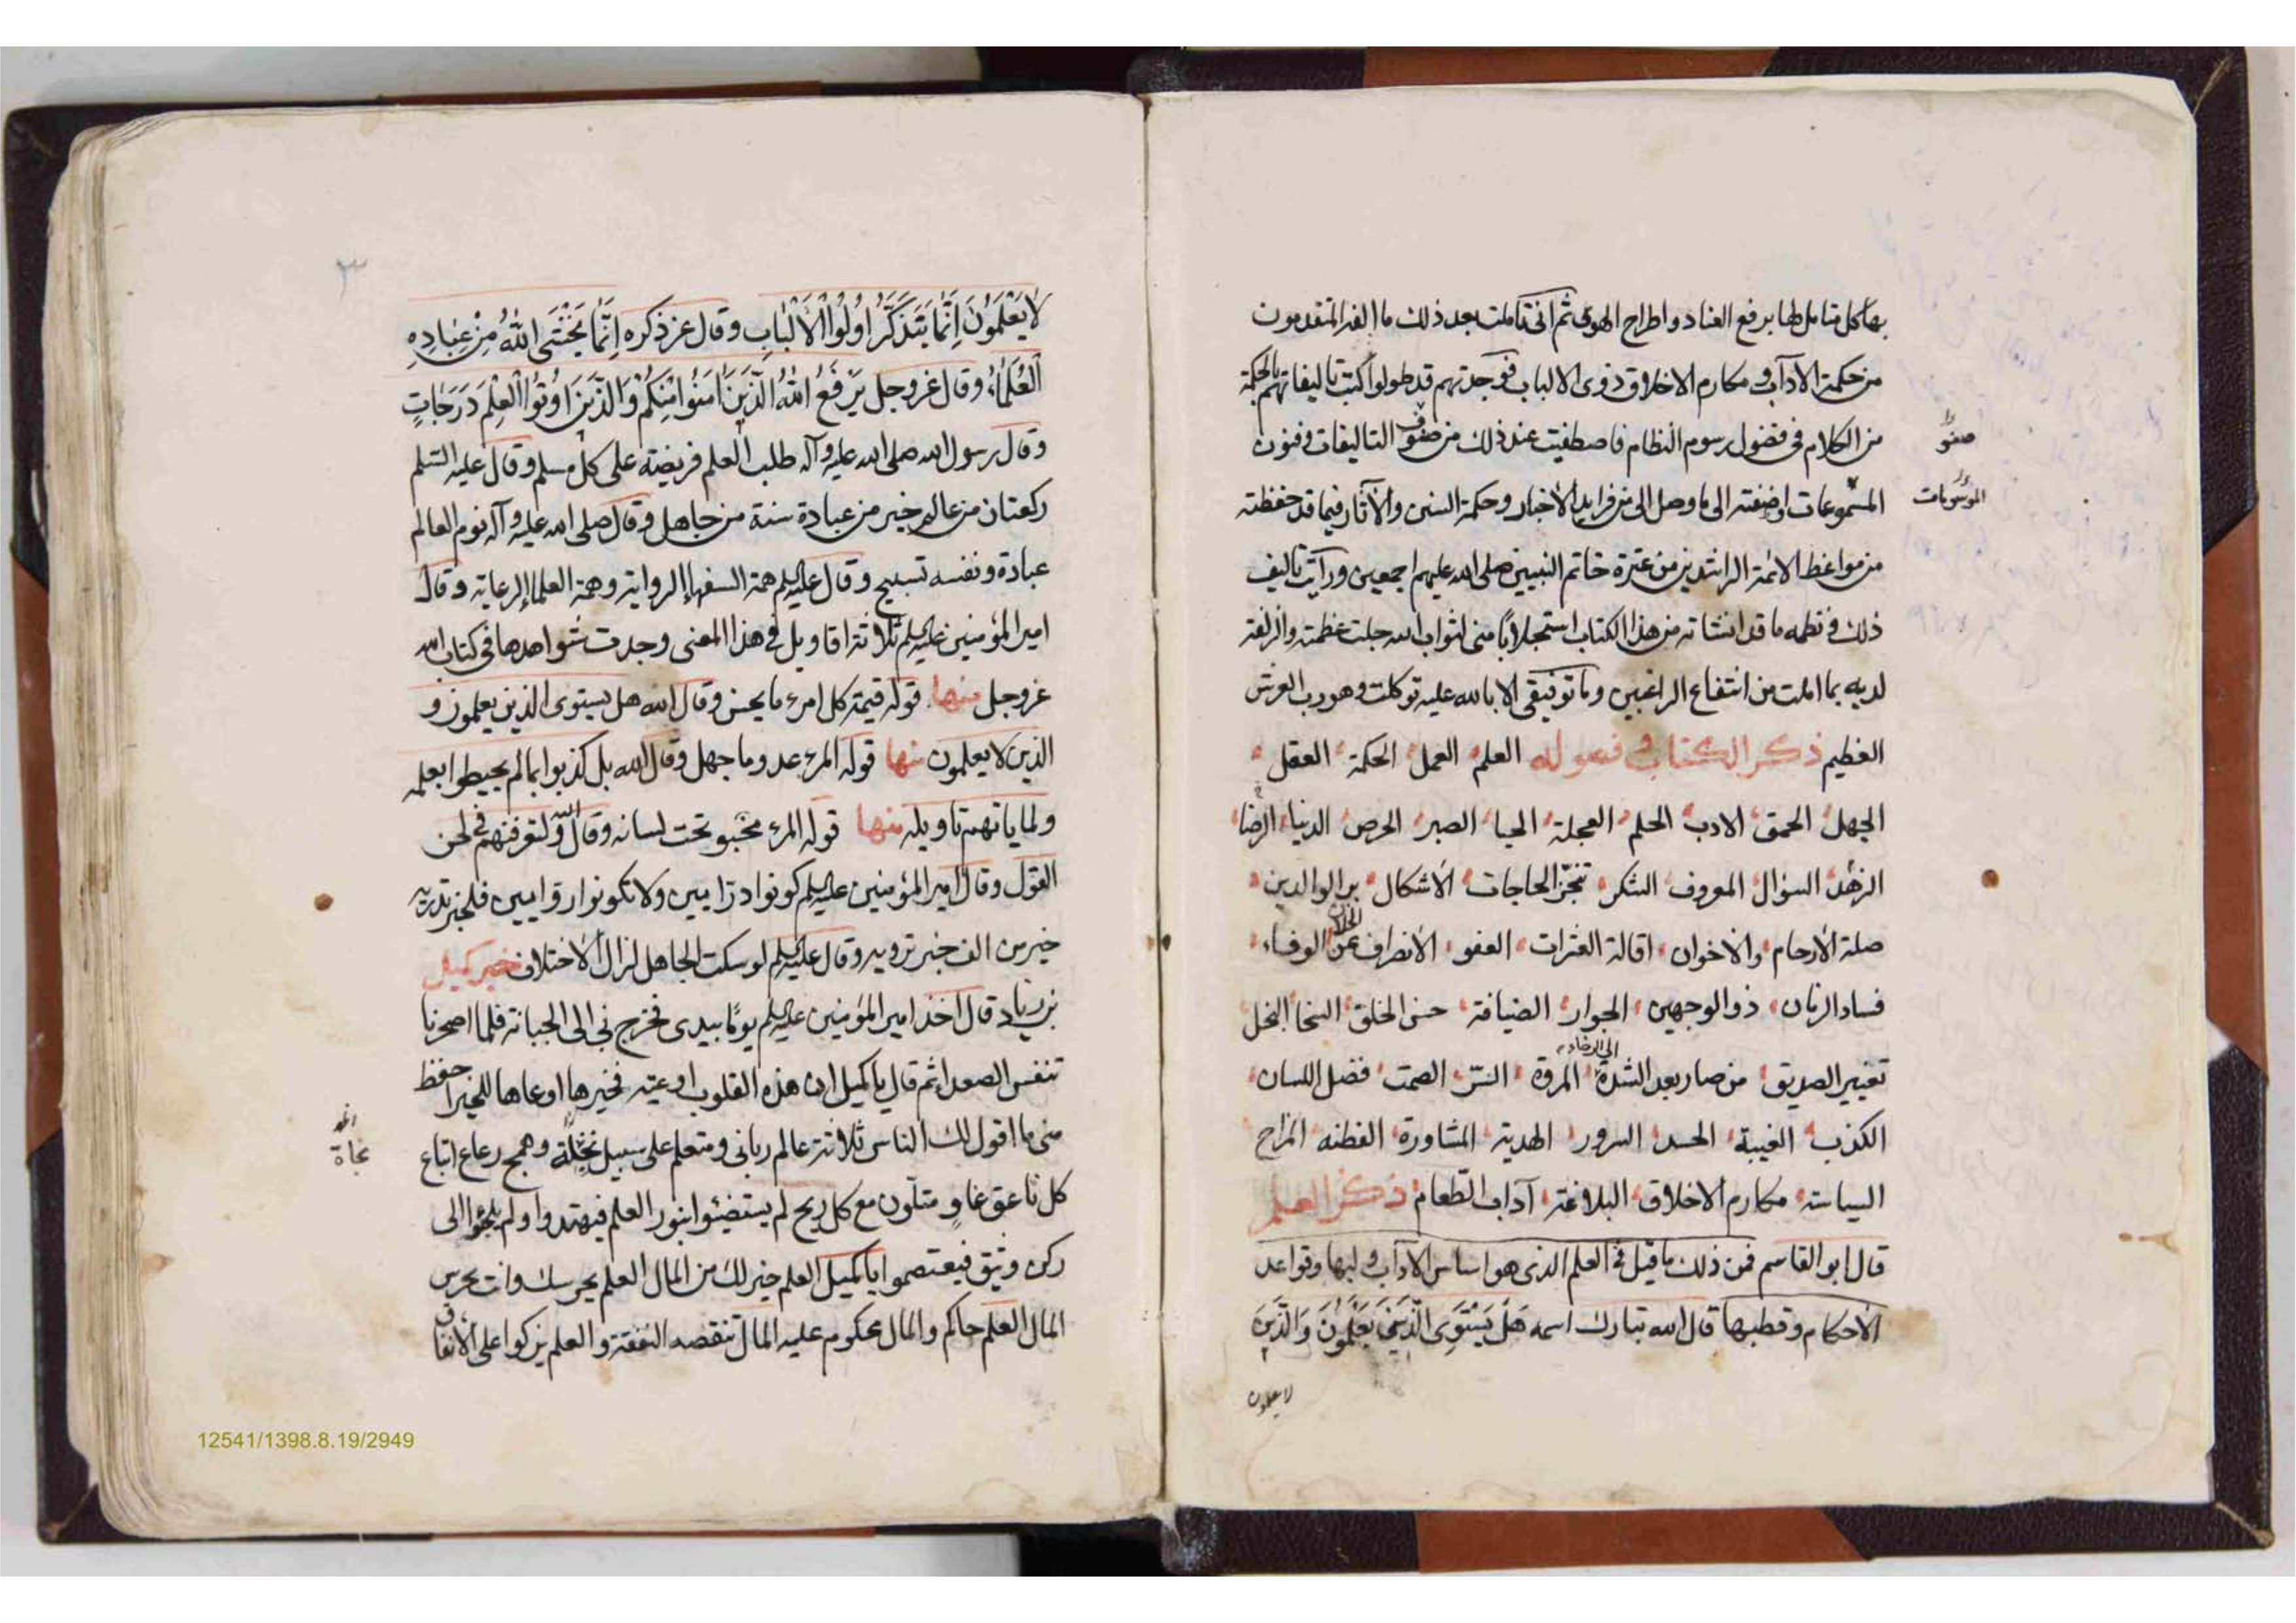 بها كل متامل لها برفع العناد و اطراح الهوى ثم انى تاملت بعد ذلك ما الفه المتقدمون
من حكمة الآداب و مكارم الاخلاق ذوى الالباب فوجدتهم قد طولوا كتب تاليفاتهم بالحكمة
من الكلام فى فضول رسوم النظام فاصطفيت عند ذلك من صفوف التاليفات و فنون
صنو
المسموعات و اضفته الى ما وصل الى من فرايد الاخبار و حكمة السنن والآثار فيما قد حفظته
الموسومات
من مواعظ الائمة الراشدين من عترة خاتم النبيين صلى الله عليهم اجمعين و رأيت تاليف
ذلك و نظمه ما قد انشاته من هذا الكتاب استجلابا منى لثواب الله جلت عظمته والزلفة
لديه بما املت من انتفاع الراغبين و ما توفيقى الا بالله عليه توكلت و هو رب العرش
العظيم ذكر الكتاب و فصوله العلم العمل الحكمة العقل
الجهل الحمق الادب الحلم العجلة الحيا الصبر الحرص الدنيا الرضا
الزهد السؤال المعروف الشكر تنجّز الحاجات الاشكال بر الوالدين
صلة الارحام والاخوان اقالة العثرات العفو الانصراف عن الوفاء
فساد الزمان ذو الوجهين الجوار الضيافة حسن الخلق السخا البخل
تغيير الصديق من صار بعد الشدة الى الرخاء المروة السّر الصمت فضل اللسان
الكذب الغيبة الحسد السرور الهدية المشاورة الفطنه المزاح
السياسة مكارم الاخلاق البلاغة آداب الطّعام ذكر العلم
قال ابو القاسم فمن ذلك ما قيل فى العلم الذى هو اساس الآداب و لبها و قواعد
الاحكام و قطبها قال الله تبارك اسمه هَلْ يَسْتَوِى الَّذِينَ يَعْلَمُونَ وَالَّذِينَ
لا يعلمون
٣
لا يَعْلَمُونَ اِنَّمَا يَتَذَكَّرُ اُولُوا الْاَلْبَابِ و قال عز ذكره اِنَّمَا يَخْشَى اللهَ مِنْ عِبَادِهِ
الْعُلَمَاءُ و قال عز و جل يَرْفَعُ اللهُ الَّذِينَ اٰمَنُوا مِنْكُمْ وَالَّذِينَ اُوتُوا الْعِلْمَ دَرَجَاتٍ
و قال رسول الله صلى الله عليه و آله طلب العلم فريضة على كل مسلم و قال عليه السّلم
ركعتان من عالم خير من عبادة سنة من جاهل و قال صلى الله عليه و آله نوم العالم
عبادة و نفسه تسبيح و قال عليه السلم همة السفهاء الرواية و همة العلماء الرعاية و قال
امير المؤمنين عليه السلم ثلاثة اقاويل فى هذا المعنى وجدت شواهدها فى كتاب الله
عز و جل منها قوله قيمة كل امرء ما يحسن و قال الله هل يستوى الذين يعلمون و
الذين لا يعلمون منها قوله المرء عدو ما جهل و قال الله بل كذبوا بما لم يحيطوا بعلمه
و لما ياتهم تاويله منها قوله المرء مخبو تحت لسانه و قال الله و لتعرفنهم فى لحن
القول و قال امير المؤمنين عليه السلم كونوا درّايين و لا تكونوا روّايين فلخبر تدريه
خير من الف خبر ترويه و قال عليه السلم لو سكت الجاهل لزال الاختلاف خبر كميل
بن زياد قال اخذ امير المؤمنين عليه السلم يومًا بيدى فخرج بى الى الجبانة فلما اصحرنا
تنفس الصعداء ثم قال يا كميل ان هذه القلوب اوعية فخيرها اوعاها للخير احفظ
منى ما اقول لك الناس ثلاثة عالم ربانى و متعلم على سبيل و همج رعاع اتباع
نجاة
كل ناعق غاوٍ متلّون مع كل ريح لم يستضيئوا بنور العلم فيهتدوا و لم يلجؤا الى
ركن وثيق فيعتصموا يا كميل العلم خير لك من المال العلم يحرسك و انت تحرس
المال العلم حاكم و المال محكوم عليه المال تنقصه النفقة و العلم يزكوا على الانفاق
12541/1398.8.19/2949